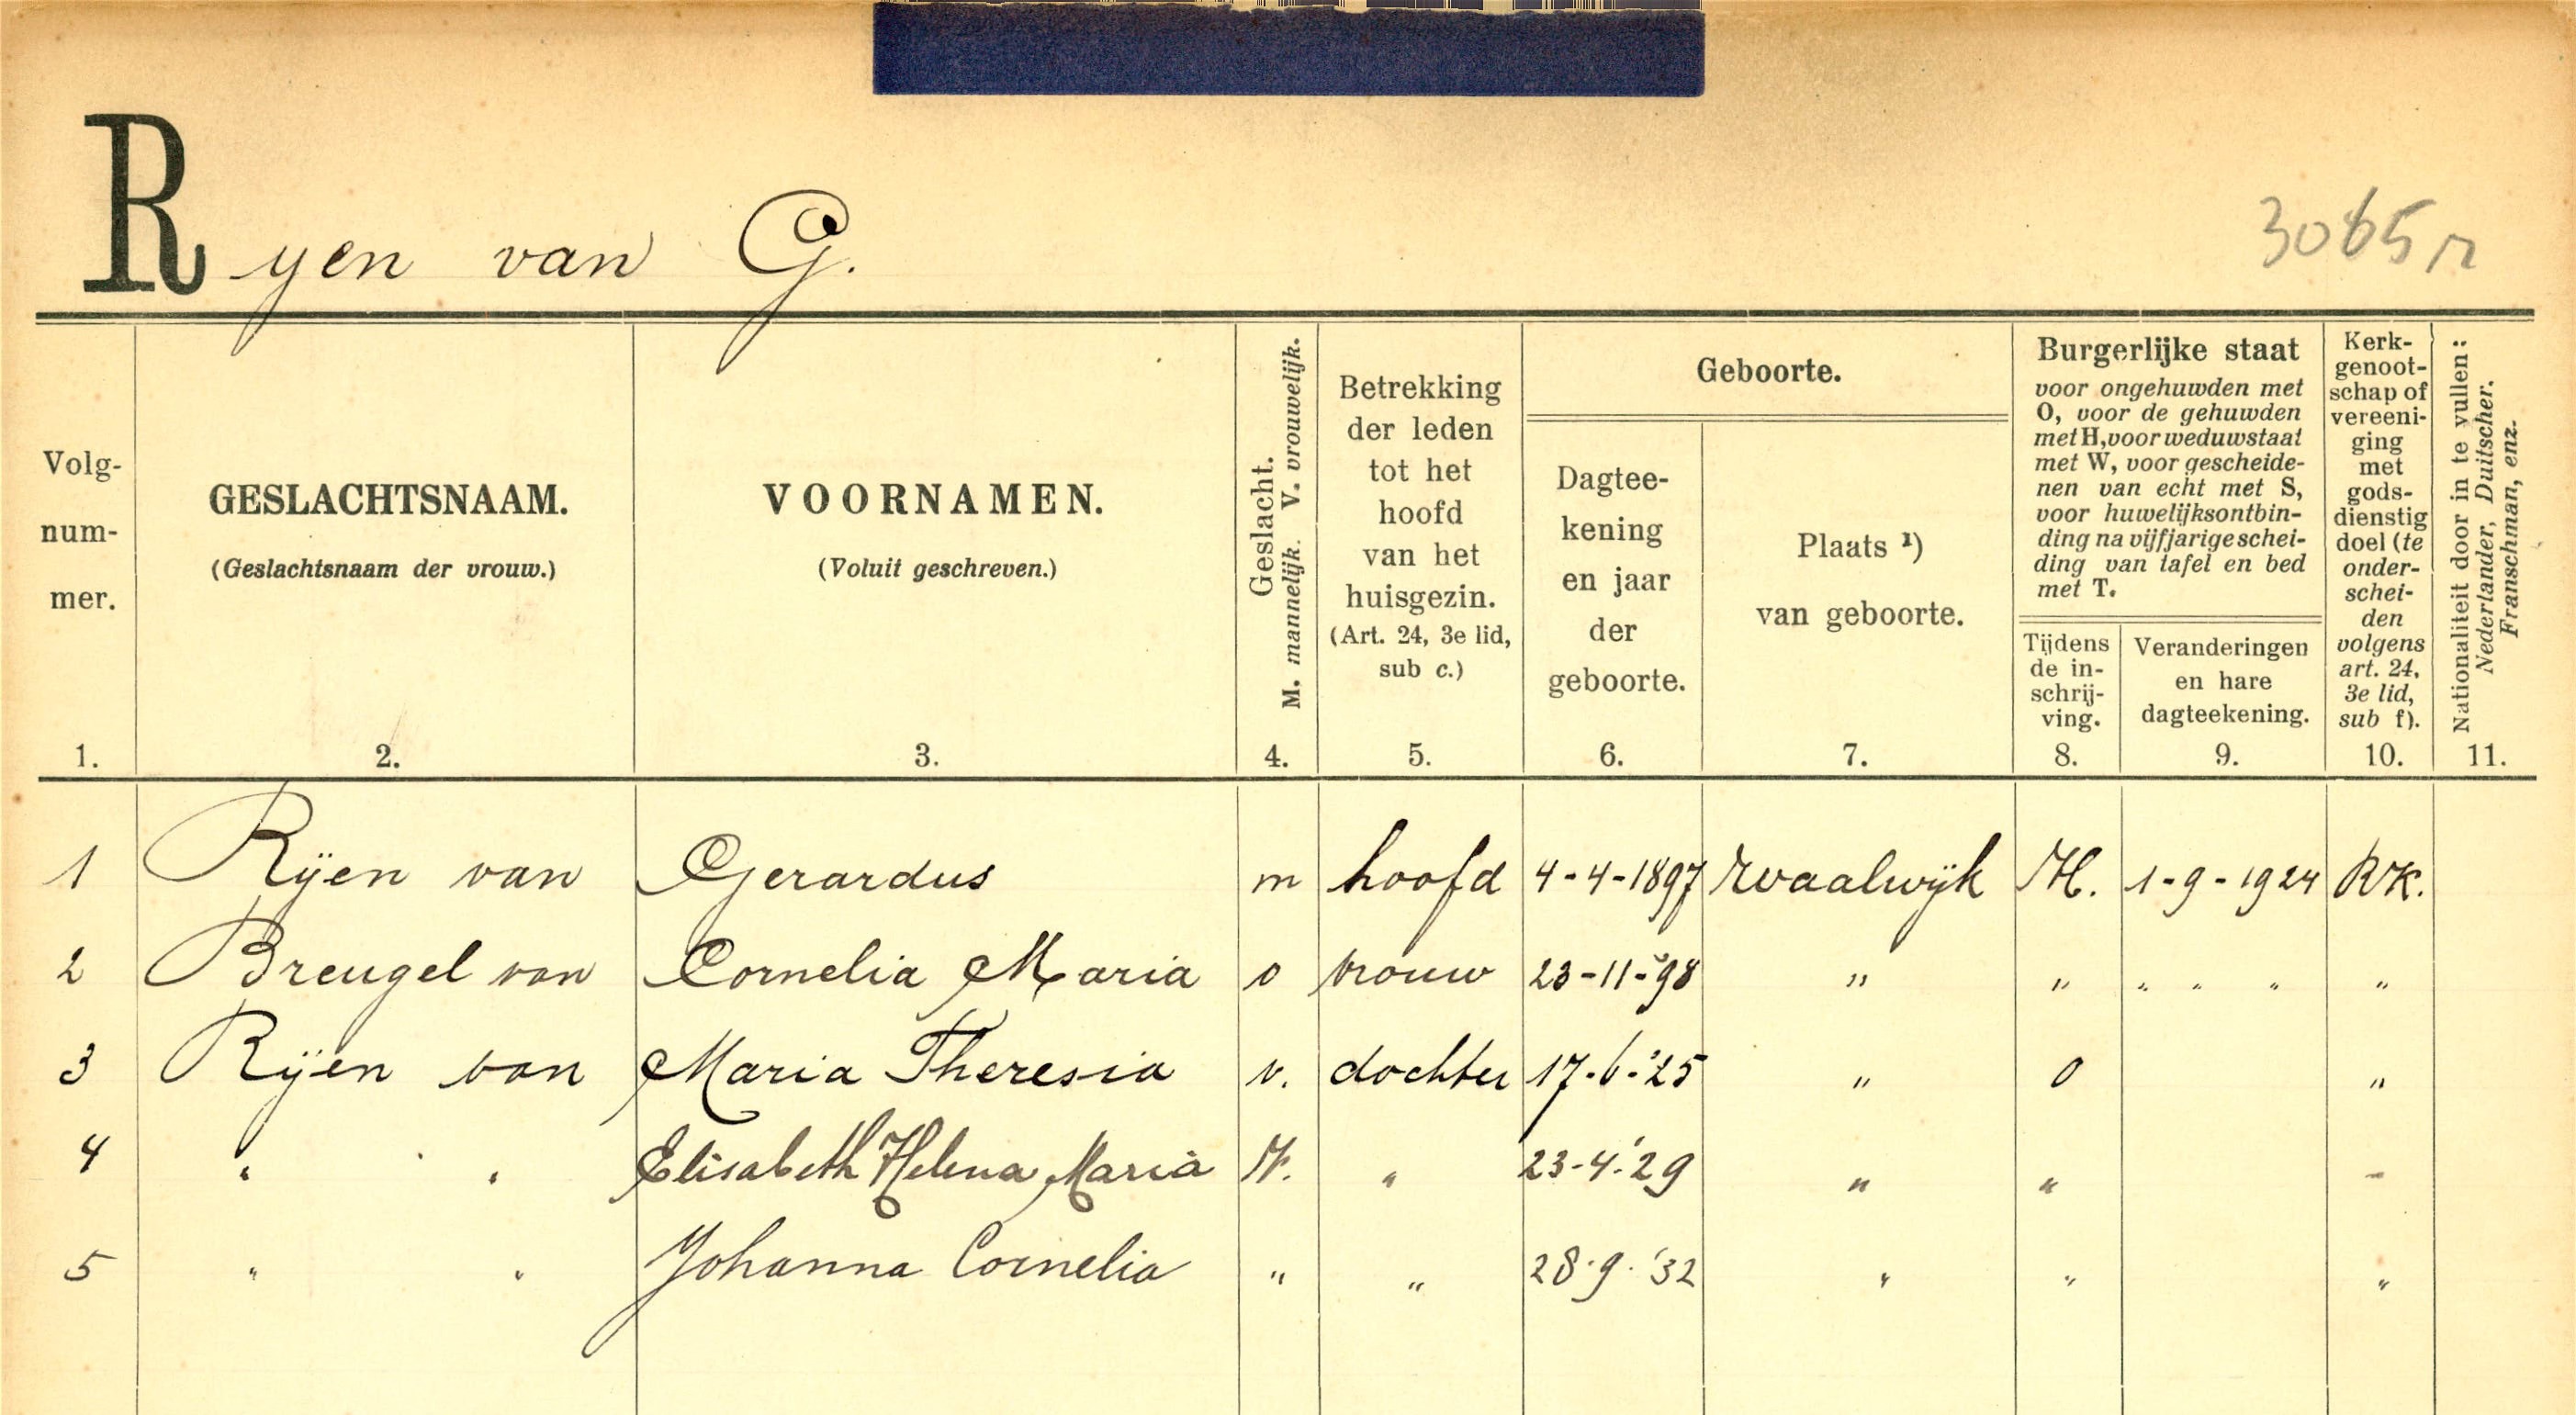 Ryen van G.
3085 r
Volg-
num-
mer.
1.
GESLACHTSNAAM.
(Geslachtsnaam der vrouw.)
2.
VOORNAMEN.
(Voluit geschreven.)
3.
Geslacht.
M. mannelijk. V. vrouwelijk.
4.
Betrekking
der leden
tot het
hoofd
van het
huisgezin.
(Art. 24, 3e lid,
sub c.)
5.
Geboorte.
Dagtee-
kening
en jaar
der
geboorte.
6.
Plaats ¹)
van geboorte.
7.
Burgerlijke staat
voor ongehuwden met
O, voor de gehuwden
met H, voor weduwstaat
met W, voor gescheide-
nen van echt met S,
voor huwelijksontbin-
ding na vijfjarige schei-
ding van tafel en bed
met T.
Tijdens
de in-
schrij-
ving.
8.
Veranderingen
en hare
dagteekening.
9.
Kerk-
genoot-
schap of
vereeni-
ging
met
gods-
dienstig
doel (te
onder-
schei-
den
volgens
art. 24,
3e lid,
sub f).
10.
Nationaliteit door in te vullen:
Nederlander, Duitscher.
Franschman, enz.
11.
1 Rijen van Gerardus m hoofd 4-4-1897 Waalwijk H. 1-9-1924 RK.
2 Breugel van Cornelia Maria v vrouw 23-11-'98 " " " " " "
3 Rijen van Maria Theresia v. dochter 17-6-'25 " O "
4 " " Elisabeth Helena Maria V. " 23-4-'29 " " "
5 " " Johanna Cornelia " " 28-9-'32 " " "